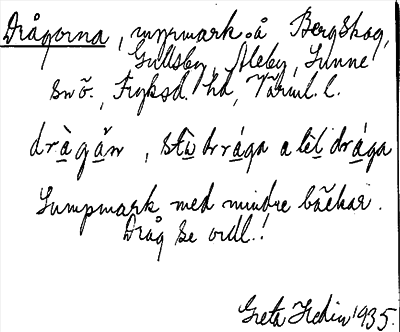 Drågorna, myrmark å Bergskog,
Gullsby, Åleby, Sunne
snö., Fryksd. hd, Värml. l.
dràgǎn, stu̇ brága a lı̇tl drága
Sumpmark med mindre bäckar.
Dråg se ordl.!
Greta Hedin 1935.